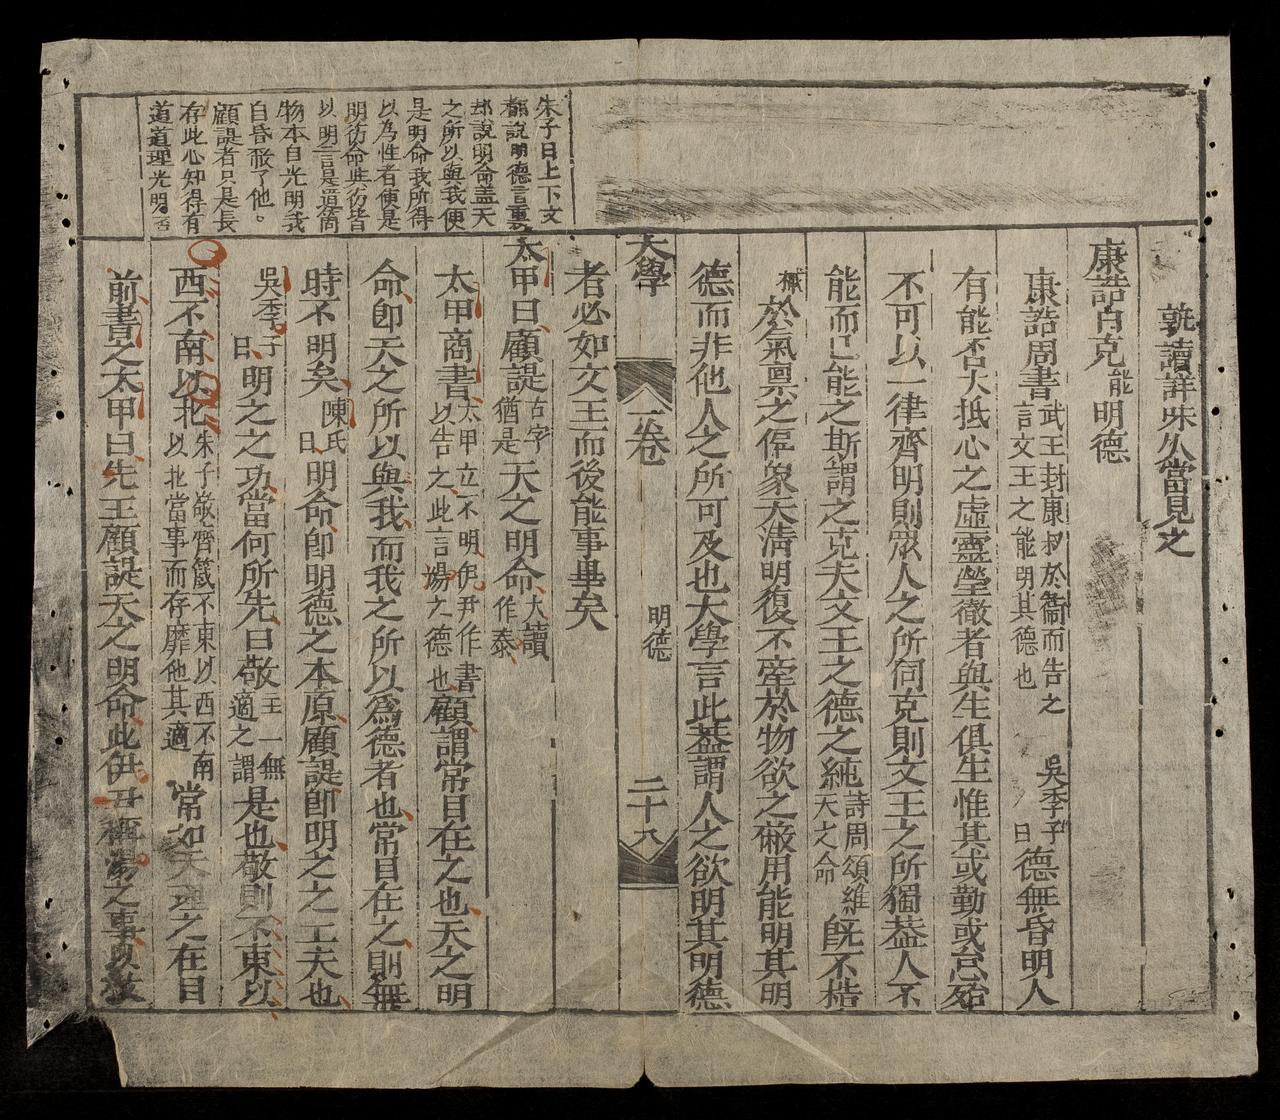 孰讀詳味久當見之
康誥曰克能明德
康誥周書武王封康叔於衛而告之言文王之能明其德也吳季子曰德無昏明人
有能否大抵心之虛靈瑩徹者與生俱生惟其或勤或怠殆
不可以一律齊明則眾人之所同克則文王之所獨蓋人不
能而己能之斯謂之克夫文王之德之純詩周頌維天之命既不梏
於氣稟之偏象天清明復不牽於物欲之蔽用能明其明
德而非他人之所可及也大學言此蓋謂人之欲明其明德
大學 一卷 明德 二十八
者必如文王而後能事畢矣
太甲曰顧諟古字猶是天之明命大讀作泰
太甲商書太甲立不明伊尹作書以告之此言湯之德也顧謂常目在之也天之明
命即天之所以與我而我之所以為德者也常目在之則無
時不明矣陳氏曰明命即明德之本原顧諟即明之之工夫也
吳季子曰明之之功當何所先曰敬主一無適之謂是也敬則不東以
西不南以北朱子敬齊箴不東以西不南以北當事而存靡他其適常如天理之在目
前書之太甲曰先王顧諟天之明命此伊尹稱湯之事以
朱子曰上下文
都說明德言裏
却說明命蓋天
之所以與我便
是明命我所得
以為性者便是
明德命與德皆
以明言是這箇
物本自光明我
自昏蔽了他。
顧諟者只是長
存此心知得有
道道理光明